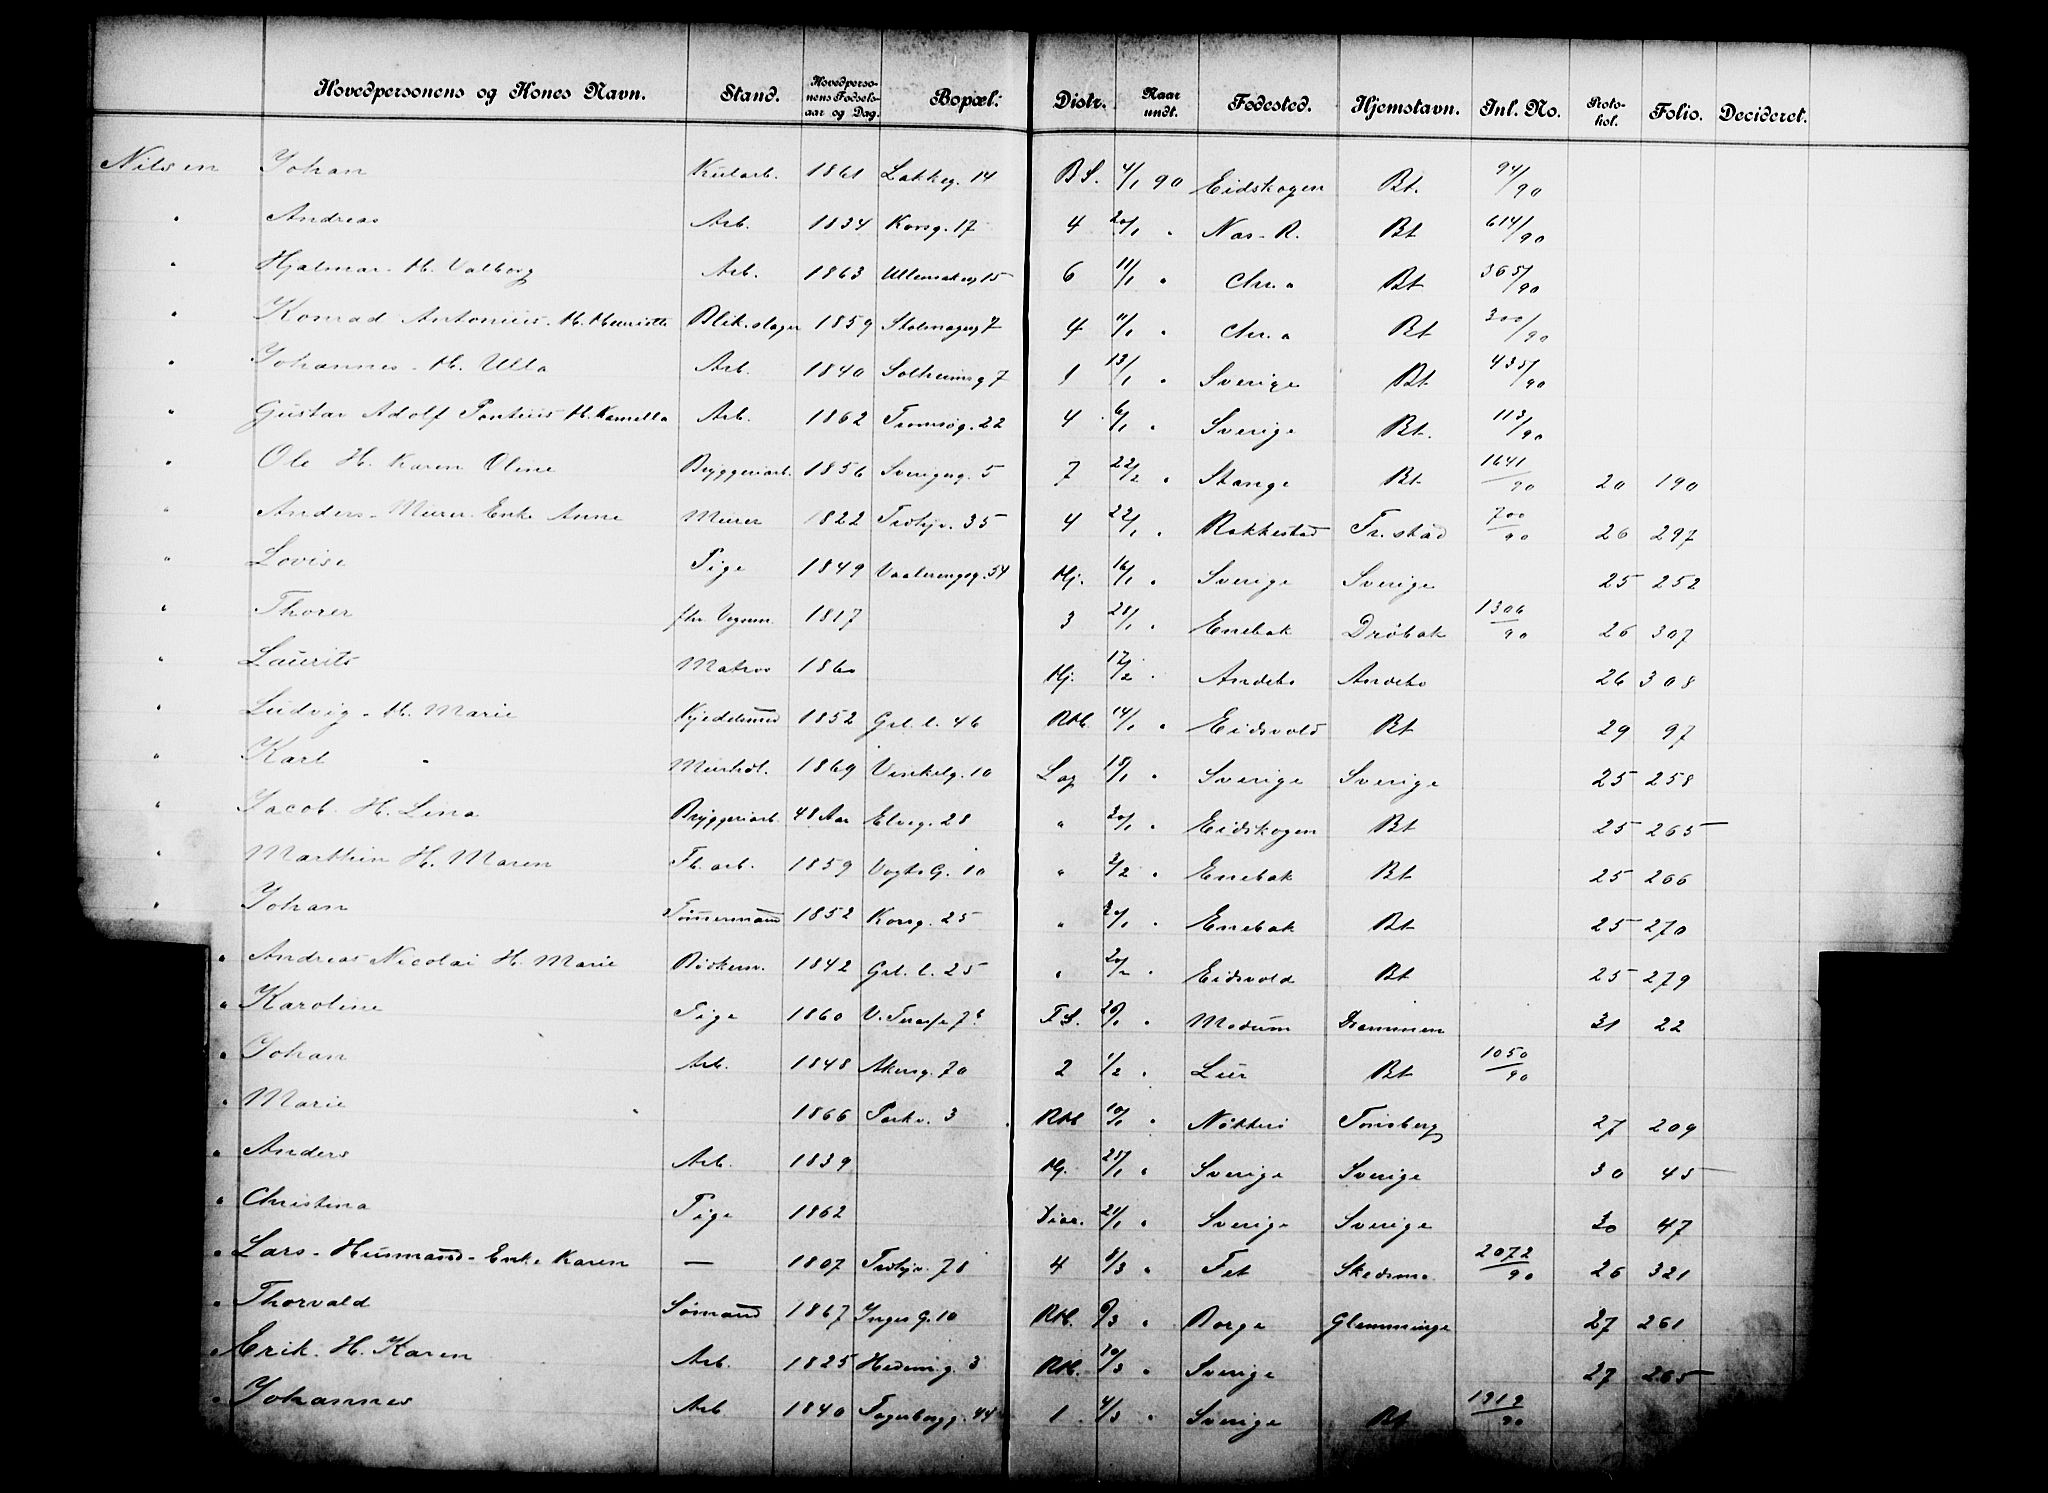 Hovedpersonens og Kones Navn. Stand. Hovedpersonens Fødselsaar og Dag. Bopæl. Distr. Naar undt. Fødested. Hjemstavn. Inl. No. Protokol. Folio. Decideret.
Nilsen Johan Kularb. 1861 Lakkeg. 14 BS. 4/1 90 Eidskogen Bt. 94/90
" Andreas Arb. 1834 Korsg. 17 4 20/1 " Næs. R. Bt 614/90
" Hjalmar H. Valborg Arb. 1863 Ullensakerg 15 6 11/1 " Chr.a Bt 365/90
" Konrad Antonius H. Henriette Blikslager 1859 Stolmagerg 7 4 11/1 " Chr.a Bt 300/90
" Johannes H. Ulla Arb. 1840 Solheimsg 7 1 13/1 " Sverige Bt. 435/90
" Gustav Adolf Pontius H. Kamilla Arb. 1862 Tromsøg. 22 4 6/1 " Sverige Bt. 113/90
" Ole H. Karen Oline Bryggeriarb. 1856 Sverigesg. 5 7 22/2 " Stange Bt 1641/90 20 190
" Anders Murer Enke Anne Murer 1822 Trohjv. 35 4 22/1 " Rakkestad Fr.stad 700/90 26 297
" Lovise Pige 1849 Vaalerengsg. 54 Hj. 16/1 " Sverige Sverige 25 252
" Thorer fhv. Vognm. 1817 3 28/1 " Enebak Drøbak 1306/90 26 307
" Laurits Matros 1860 Hj. 12/2 " Andebo Andebo 26 308
" Ludvig H. Marie Kjedelsmed 1852 Grl. l. 46 RH. 14/1 " Eidsvold Bt 29 97
" Karl " Murhdl. 1869 Vinkelg. 10 Lag 15/1 " Sverige Sverige 25 258
" Jacob H. Lina Bryggeriarb 48 Aar Elveg. 28 " 20/1 " Eidskogen Bt 25 265
" Marthin H. Maren Fb. arb. 1859 Vogts G. 10 " 3/2 " Enebak Bt 25 266
" Johan Tømmermand 1852 Korsg. 25 " 24/1 " Enebak Bt 25 270
" Andreas Nicolai H. Marie Bødkersv. 1842 Grl. l. 25 " 20/2 " Eidsvold Bt 25 279
" Karoline Pige 1860 V. Terasse 7b FS. 28/1 " Modum Drammen 31 22
" Johan Arb. 1848 Akersg. 70 2 1/2 " Lier Bt 1050/90
" Marie 1866 Parkv. 3 RH 10/1 " Nøtterø Tønsberg 27 209
" Anders Arb. 1839 Hj. 25/1 " Sverige Sverige 30 45
" Christina Pige 1862 21/1 " Sverige Sverige 30 47
" Lars Husmand Enke Karen — 1807 Trohjv. 78 4 8/3 " Fet Skedsmo 2072/90 26 321
" Thorvald Sømand 1867 Inges G. 10 RH. 6/3 " Borge Glemminge 27 261
" Erik. H. Karen Arb. 1825 Hedevig. 3 RH. 20/3 " Sverige 27 265
" Johannes Arb 1840 Fagerborgg. 44 1 4/3 " Sverige Bt 1919/90